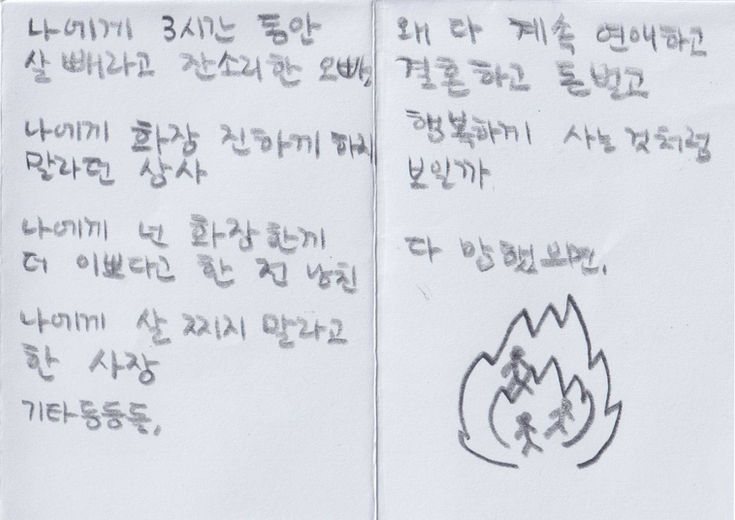 나에게 3시간 동안
살 빼라고 잔소리한 오빠는
나에게 화장 진하게 하지
말라던 상사
나에게 넌 화장한게
더 이쁘다고 한 전 남친
나에게 살 찌지 말라고
한 사장
기타등등등,
왜 다 계속 연애하고
결혼하고 돈벌고
행복하게 사는것처럼
보일까
다 망했으면,